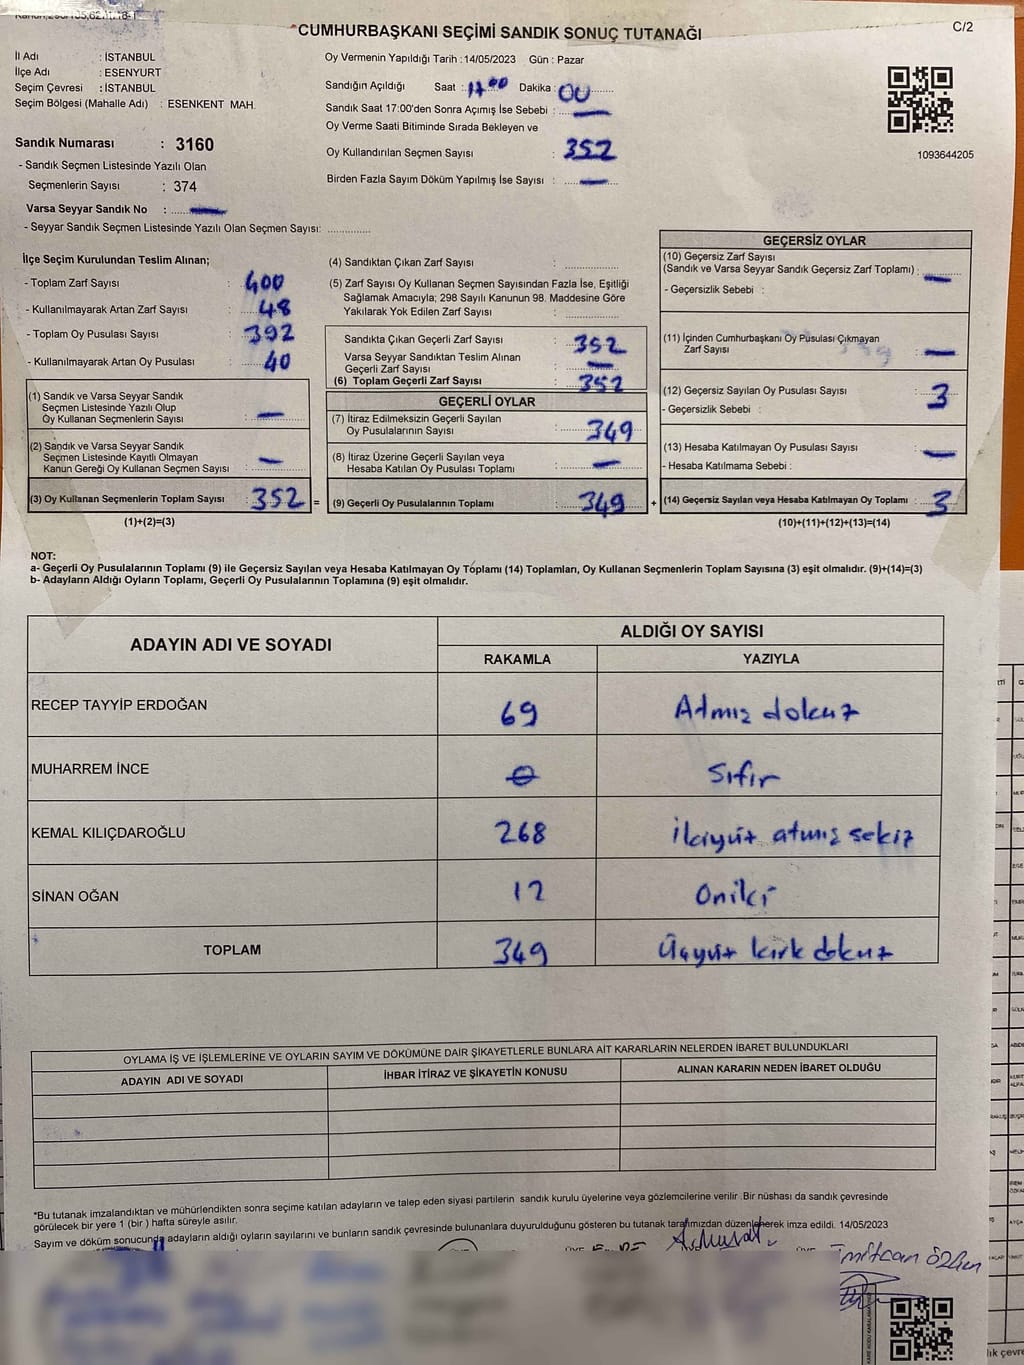 *CUMHURBAŞKANI SEÇİMİ SANDIK SONUÇ TUTANAĞI
C/2
İl Adı : İSTANBUL
İlçe Adı : ESENYURT
Seçim Çevresi : İSTANBUL
Seçim Bölgesi (Mahalle Adı) : ESENKENT MAH.
Sandık Numarası : 3160
- Sandık Seçmen Listesinde Yazılı Olan
Seçmenlerin Sayısı : 374
Varsa Seyyar Sandık No : —
- Seyyar Sandık Seçmen Listesinde Yazılı Olan Seçmen Sayısı: ..............
Oy Vermenin Yapıldığı Tarih : 14/05/2023 Gün : Pazar
Sandığın Açıldığı Saat : 17:00 Dakika : 00
Sandık Saat 17:00'den Sonra Açımış İse Sebebi : —
Oy Verme Saati Bitiminde Sırada Bekleyen ve
Oy Kullandırılan Seçmen Sayısı : 352
Birden Fazla Sayım Döküm Yapılmış İse Sayısı : —
1093644205
İlçe Seçim Kurulundan Teslim Alınan;
- Toplam Zarf Sayısı : 400
- Kullanılmayarak Artan Zarf Sayısı : 48
- Toplam Oy Pusulası Sayısı : 392
- Kullanılmayarak Artan Oy Pusulası : 40
(1) Sandık ve Varsa Seyyar Sandık
Seçmen Listesinde Yazılı Olup
Oy Kullanan Seçmenlerin Sayısı : —
(2) Sandık ve Varsa Seyyar Sandık
Seçmen Listesinde Kayıtlı Olmayan
Kanun Gereği Oy Kullanan Seçmen Sayısı : —
(3) Oy Kullanan Seçmenlerin Toplam Sayısı : 352 =
(1)+(2)=(3)
(4) Sandıktan Çıkan Zarf Sayısı : ..............
(5) Zarf Sayısı Oy Kullanan Seçmen Sayısından Fazla İse, Eşitliği
Sağlamak Amacıyla; 298 Sayılı Kanunun 98. Maddesine Göre
Yakılarak Yok Edilen Zarf Sayısı : ..............
Sandıkta Çıkan Geçerli Zarf Sayısı : 352
Varsa Seyyar Sandıktan Teslim Alınan
Geçerli Zarf Sayısı : —
(6) Toplam Geçerli Zarf Sayısı : 352
GEÇERLİ OYLAR
(7) İtiraz Edilmeksizin Geçerli Sayılan
Oy Pusulalarının Sayısı : 349
(8) İtiraz Üzerine Geçerli Sayılan veya
Hesaba Katılan Oy Pusulası Toplamı : —
(9) Geçerli Oy Pusulalarının Toplamı : 349 +
GEÇERSİZ OYLAR
(10) Geçersiz Zarf Sayısı
(Sandık ve Varsa Seyyar Sandık Geçersiz Zarf Toplamı) : —
- Geçersizlik Sebebi :
(11) İçinden Cumhurbaşkanı Oy Pusulası Çıkmayan
Zarf Sayısı : —
(12) Geçersiz Sayılan Oy Pusulası Sayısı : 3
- Geçersizlik Sebebi :
(13) Hesaba Katılmayan Oy Pusulası Sayısı : —
- Hesaba Katılmama Sebebi :
(14) Geçersiz Sayılan veya Hesaba Katılmayan Oy Toplamı : 3
(10)+(11)+(12)+(13)=(14)
NOT:
a- Geçerli Oy Pusulalarının Toplamı (9) ile Geçersiz Sayılan veya Hesaba Katılmayan Oy Toplamı (14) Toplamları, Oy Kullanan Seçmenlerin Toplam Sayısına (3) eşit olmalıdır. (9)+(14)=(3)
b- Adayların Aldığı Oyların Toplamı, Geçerli Oy Pusulalarının Toplamına (9) eşit olmalıdır.
ADAYIN ADI VE SOYADI ALDIĞI OY SAYISI
RAKAMLA YAZIYLA
RECEP TAYYİP ERDOĞAN 69 Atmış dokuz
MUHARREM İNCE 0 Sıfır
KEMAL KILIÇDAROĞLU 268 İkiyüz atmış sekiz
SİNAN OĞAN 12 Oniki
TOPLAM 349 Üçyüz kırk dokuz
OYLAMA İŞ VE İŞLEMLERİNE VE OYLARIN SAYIM VE DÖKÜMÜNE DAİR ŞİKAYETLERLE BUNLARA AİT KARARLARIN NELERDEN İBARET BULUNDUKLARI
ADAYIN ADI VE SOYADI İHBAR İTİRAZ VE ŞİKAYETİN KONUSU ALINAN KARARIN NEDEN İBARET OLDUĞU
*Bu tutanak imzalandıktan ve mühürlendikten sonra seçime katılan adayların ve talep eden siyasi partilerin sandık kurulu üyelerine veya gözlemcilerine verilir. Bir nüshası da sandık çevresinde
görülecek bir yere 1 (bir ) hafta süreyle asılır.
Sayım ve döküm sonucunda adayların aldığı oyların sayılarını ve bunların sandık çevresinde bulunanlara duyurulduğunu gösteren bu tutanak tarafımızdan düzenlenerek imza edildi. 14/05/2023